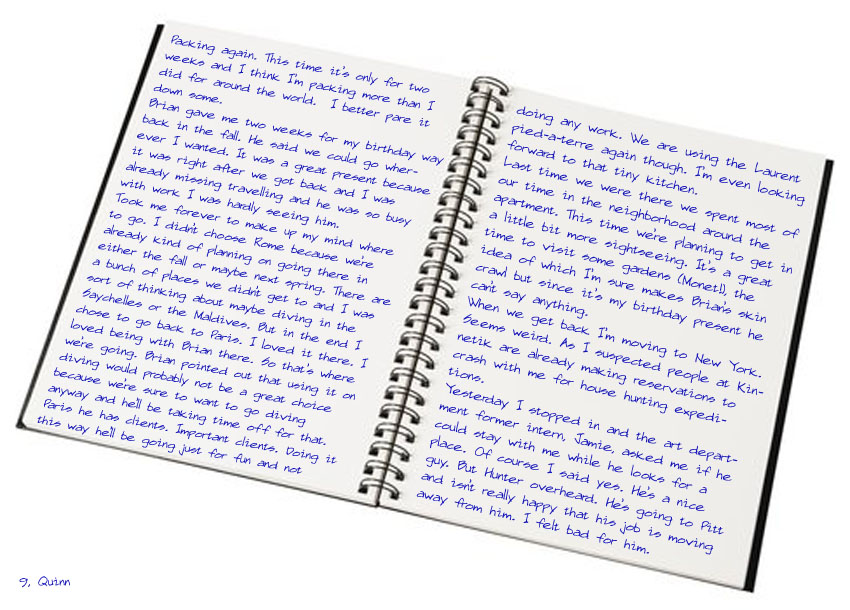 Packing again. This time it's only for two
weeks and I think I'm packing more than I
did for around the world. I better pare it
down some.
Brian gave me two weeks for my birthday way
back in the fall. He said we could go wher-
ever I wanted. It was a great present because
it was right after we got back and I was
already missing travelling and he was so busy
with work I was hardly seeing him.
Took me forever to make up my mind where
to go. I didn't choose Rome because we're
already kind of planning on going there in
either the fall or maybe next spring. There are
a bunch of places we didn't get to and I was
sort of thinking about maybe diving in the
Saychelles or the Maldives. But in the end I
chose to go back to Paris. I loved it there. I
loved being with Brian there. So that's where
we're going. Brian pointed out that using it on
diving would probably not be a great choice
because we're sure to want to go diving
anyway and he'll be taking time off for that.
Paris he has clients. Important clients. Doing it
this way he'll be going just for fun and not
doing any work. We are using the Laurent
pied-a-terre again though. I'm even looking
forward to that tiny kitchen.
Last time we were there we spent most of
our time in the neighborhood around the
apartment. This time we're planning to get in
a little bit more sightseeing. It's a great
time to visit some gardens (Monet!), the
idea of which I'm sure makes Brian's skin
crawl but since it's my birthday present he
can't say anything.
When we get back I'm moving to New York.
Seems weird. As I suspected people at Kin-
netik are already making reservations to
crash with me for house hunting expedi-
tions.
Yesterday I stopped in and the art depart-
ment former intern, Jamie, asked me if he
could stay with me while he looks for a
place. Of course I said yes. He's a nice
guy. But Hunter overheard. He's going to Pitt
and isn't really happy that his job is moving
away from him. I felt bad for him.
9, Quinn